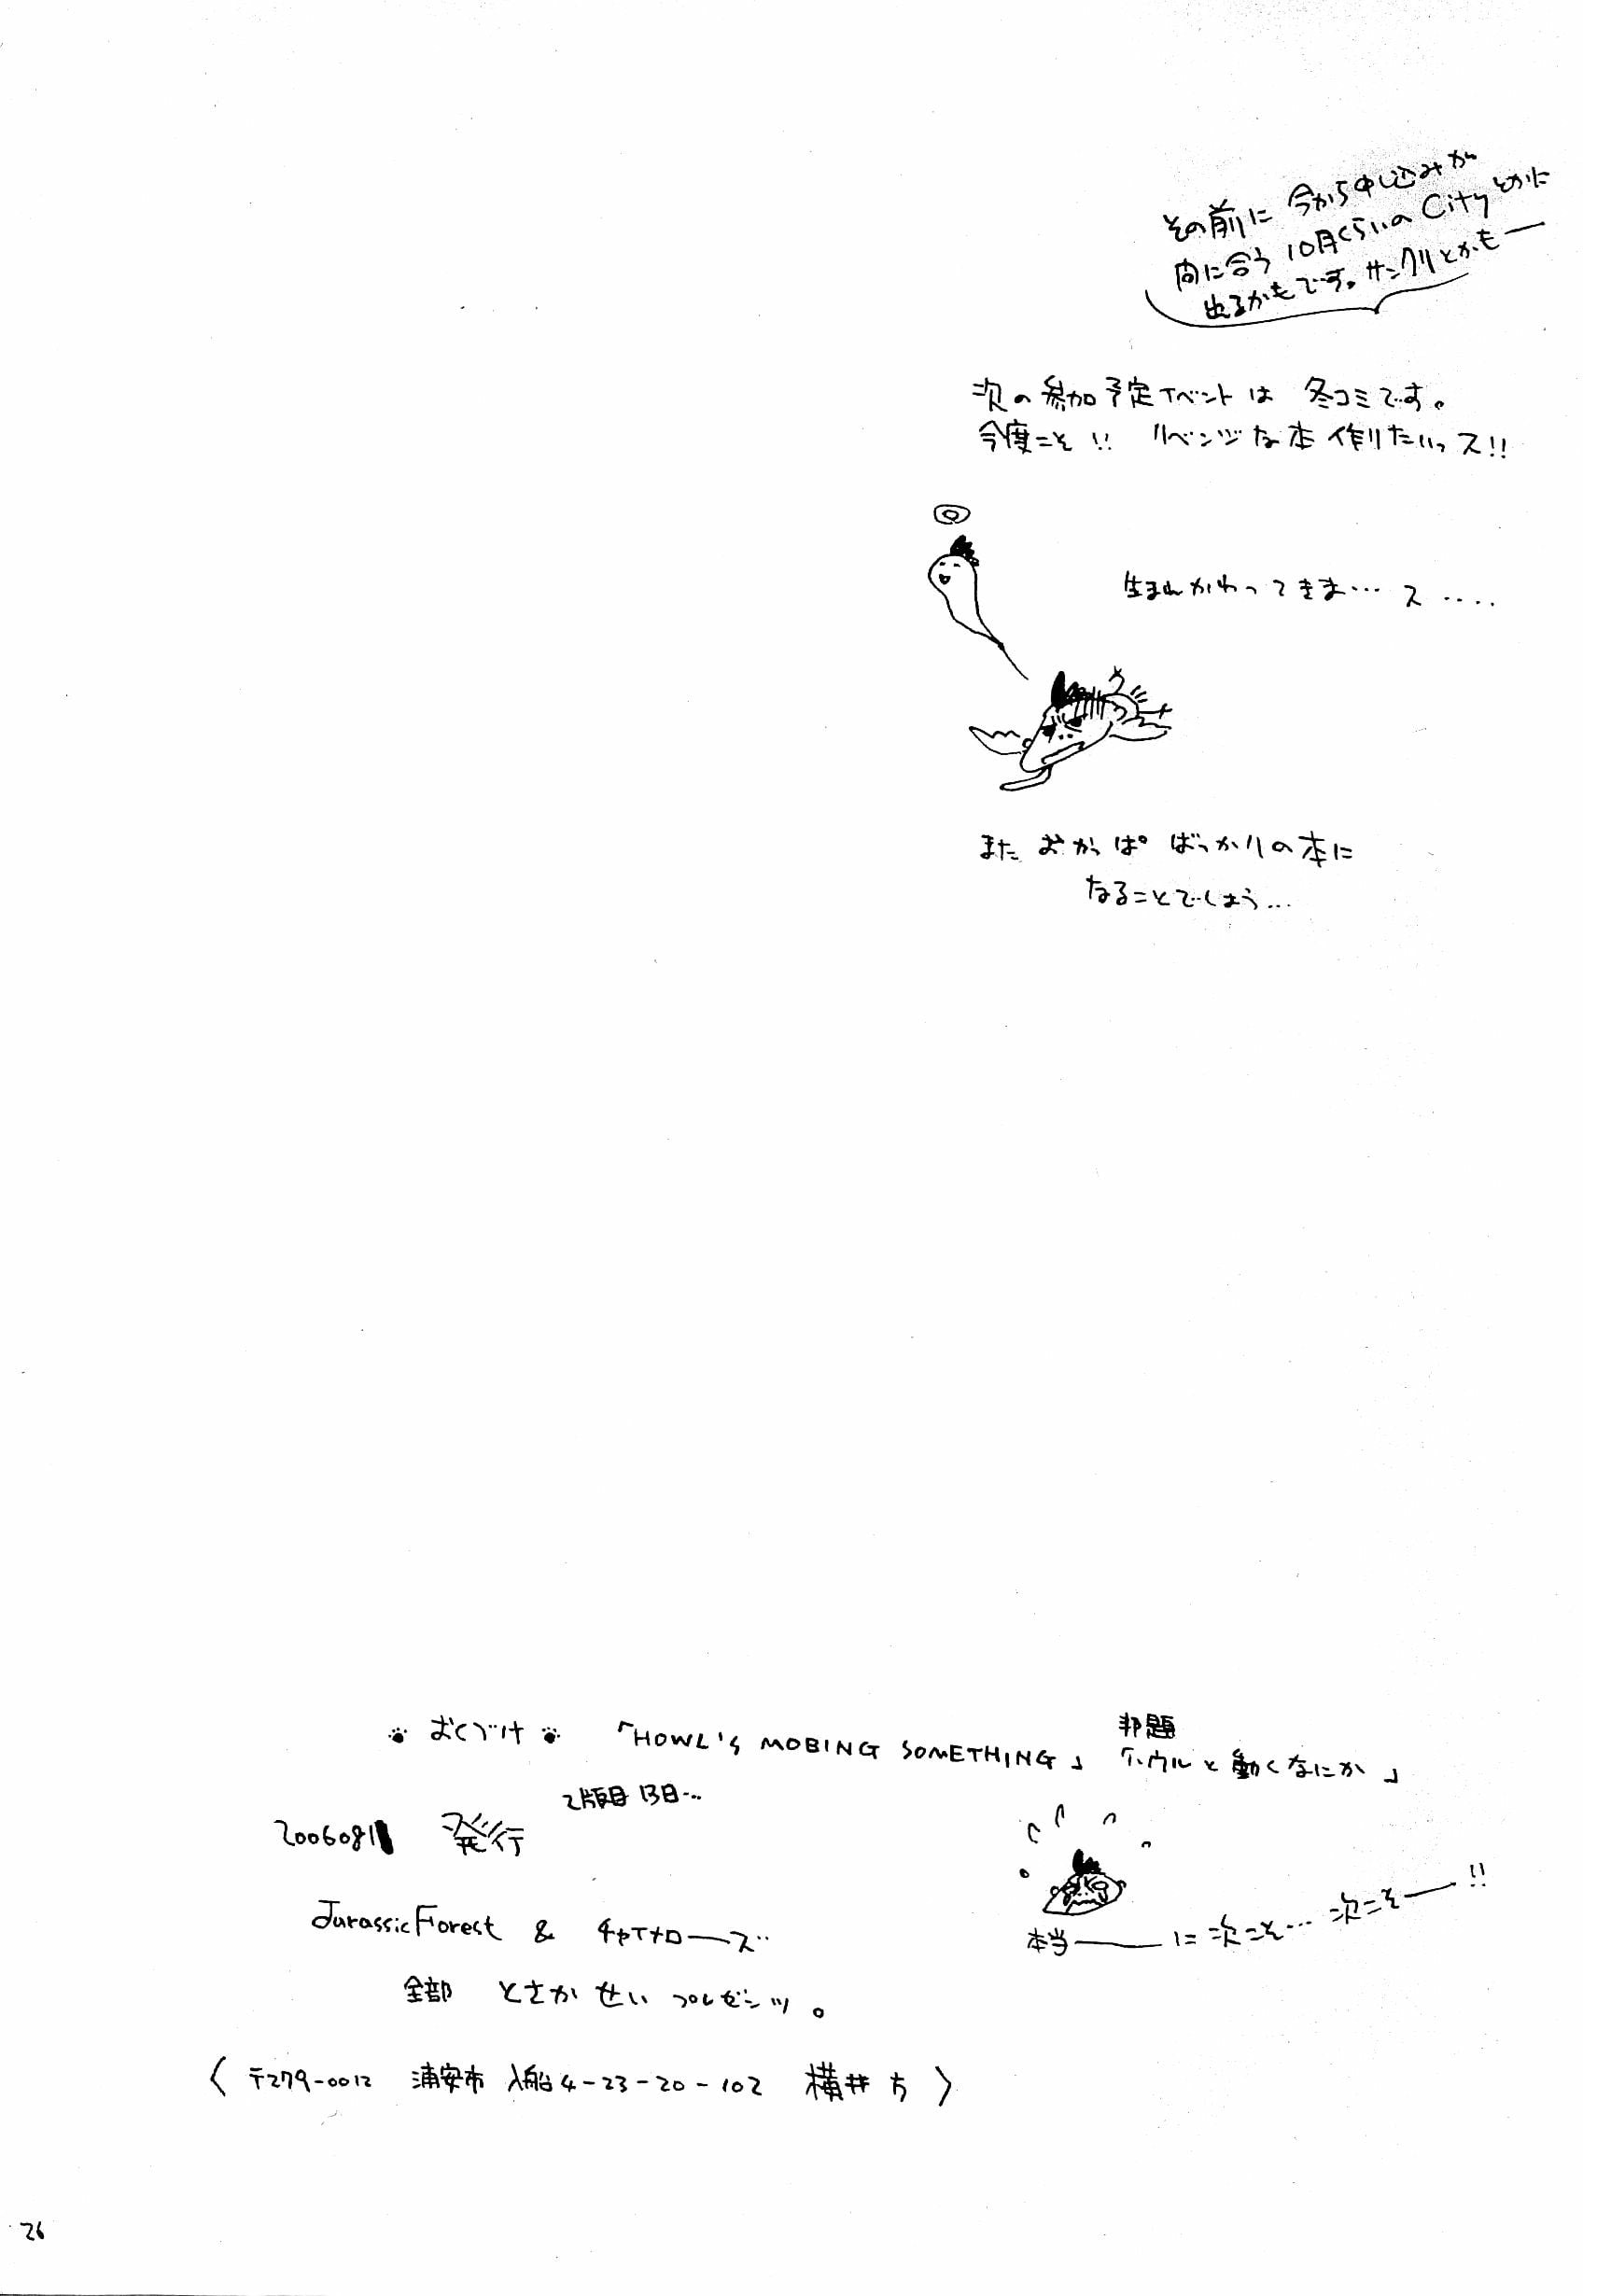 その前に 今から申し込みが
間に合う 10月くらいの Cityとかに
出るかもです。サンクリとかも──
次の参加予定イベントは 冬コミです。
今度こそ!! リベンジな本 作りたいっス!!
生まれかわってきま…ス‥‥
また おかっぱ ばっかりの本に
なることでしょう…
おくづけ 「HOWL'S MOBING SOMETHING」
邦題
「ハウルと動くなにか」
2版目 13日…
2006081 発行
Jurassic Forest & チャイナローズ
全部 とさかせい プレゼンツ。
本当───に 次こそ… 次こそ──!!
〈 〒279-0012 浦安市 入船4-23-20-102 横井方 〉
26